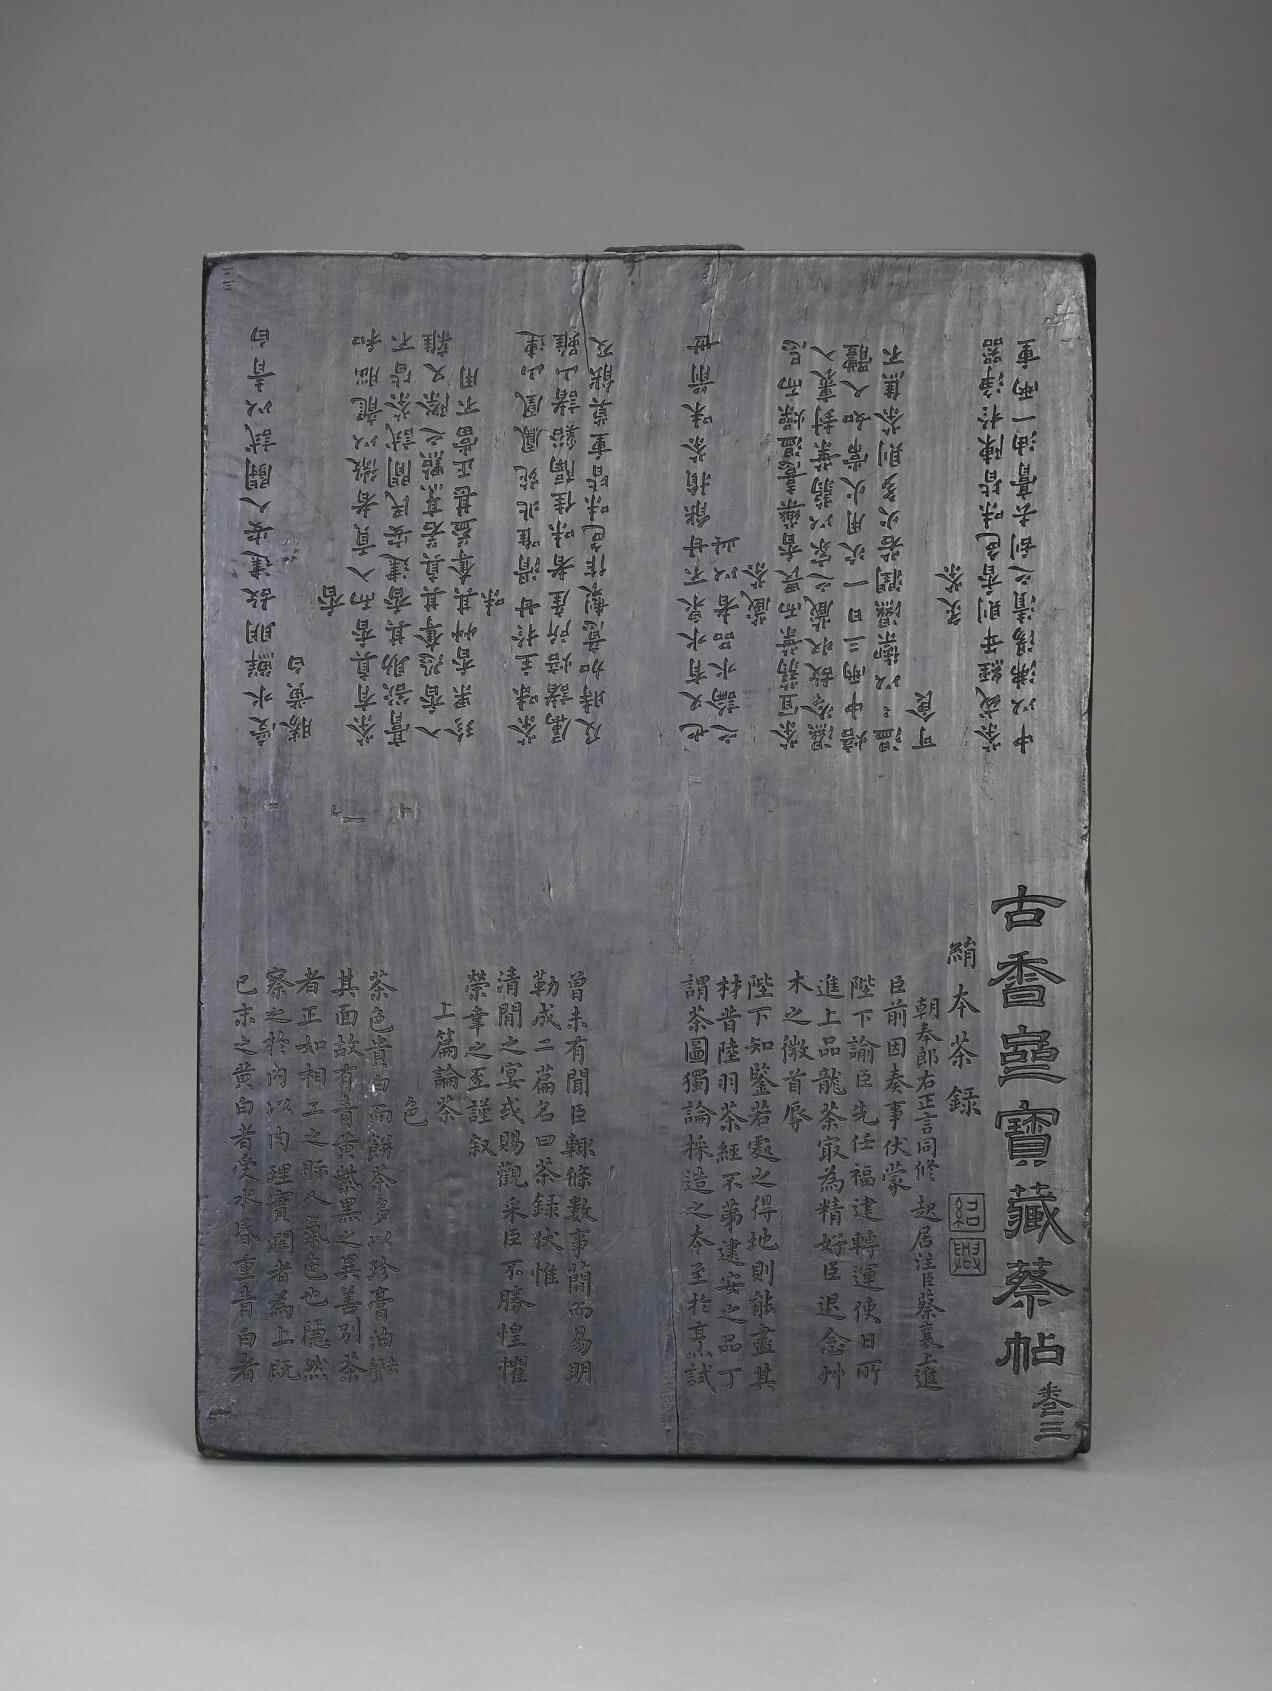 古香齋寶藏蔡帖 卷三
絹本茶錄
紹興
朝奉郎右正言同修起居注臣蔡襄上進
臣前因奏事伏蒙
陛下諭臣先任福建轉運使日所
進上品龍茶冣為精好臣退念艸
木之微首辱
陛下知鑒若處之得地則能盡其
材昔陸羽茶經不第建安之品丁
謂茶圖獨論採造之本至於烹試
曾未有聞臣輒條數事簡而易明
勒成二篇名曰茶錄伏惟
清閒之宴或賜觀采臣不勝惶懼
榮幸之至謹叙
上篇論茶
色
茶色貴白而餅茶多以珍膏油去聲
其面故有青黃紫黑之異善別茶
者正如相工之眎人氣色也隱然
察之於內以肉理實潤者為上既
已末之黃白者受水昏重青白者
受水鮮明故建安人鬪試以青白
勝黃白
香
茶有真香而入貢者微以龍腦和
膏欲助其香建安民間試茶皆不
入香恐奪其真若烹點之際又雜
珍果香艸其奪益甚正當不用
味
茶味主於甘滑唯北苑鳳凰山連
屬諸焙所產者味佳隔谿諸山雖
及時加意製作色味皆重莫能及
也又有水泉不甘能損茶味前世
之論水品者以此
藏茶
茶宜蒻葉而畏香藥喜溫燥而忌
濕冷故收藏之家以蒻葉封裹入
焙中兩三日一次用火常如人體
溫〻以禦濕潤若火多則茶焦不
可食
炙茶
茶或經年則香色味皆陳於淨器
中以沸湯漬之刮去膏油一兩重